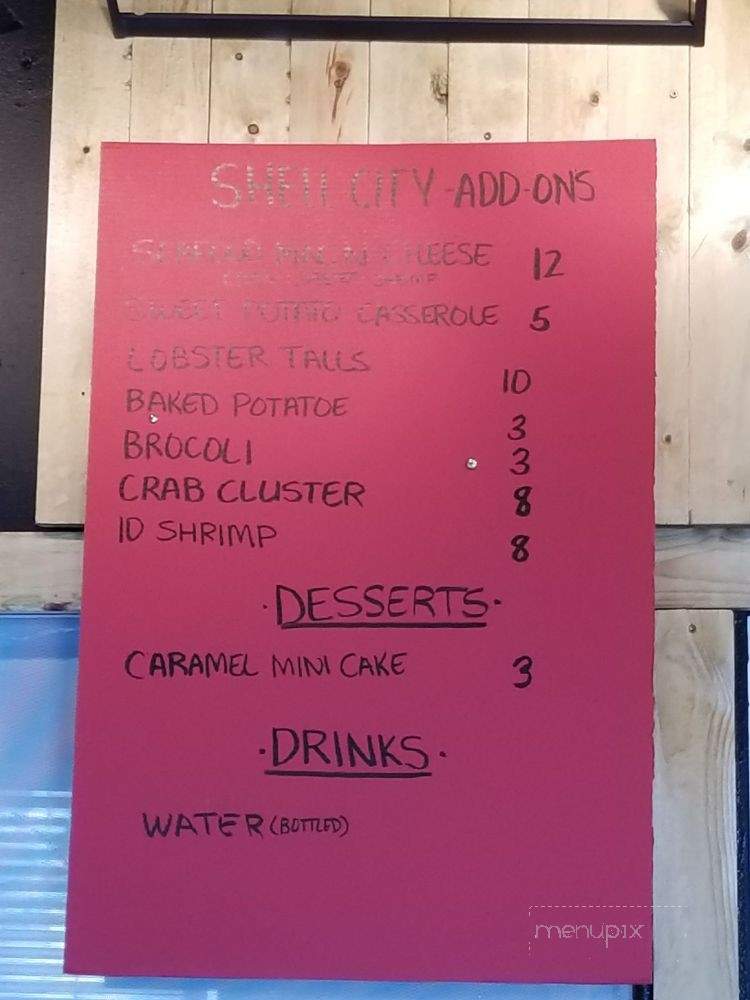 SHELL CITY - ADD-ON'S
SEAFOOD MAC N CHEESE 12
SHRIMP
SWEET POTATO CASSEROLE 5
LOBSTER TAILS 10
BAKED POTATOE 3
BROCOLI 3
CRAB CLUSTER 8
10 SHRIMP 8
· DESSERTS ·
CARAMEL MINI CAKE 3
· DRINKS ·
WATER (BOTTLED)
menupix